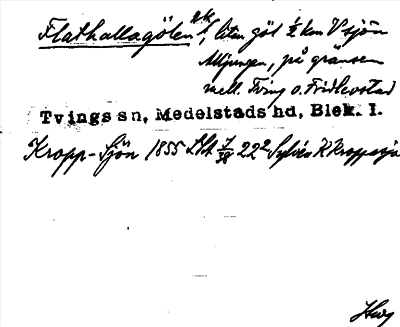 Flathallagölen nk, liten göl ½ km V sjön
Alljungen, på gränsen
mell. Tving o. Fridlevstad
Tvings sn, Medelstads hd, Blek. l.
Kropp-Sjön 1855 Lbt 22²